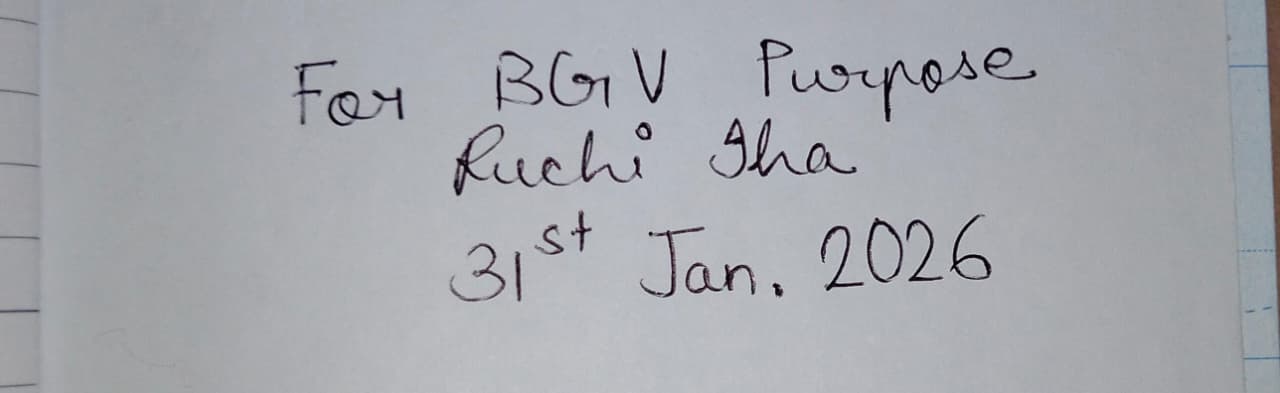 For BGV Purpose
Ruchi Jha
31st Jan. 2026